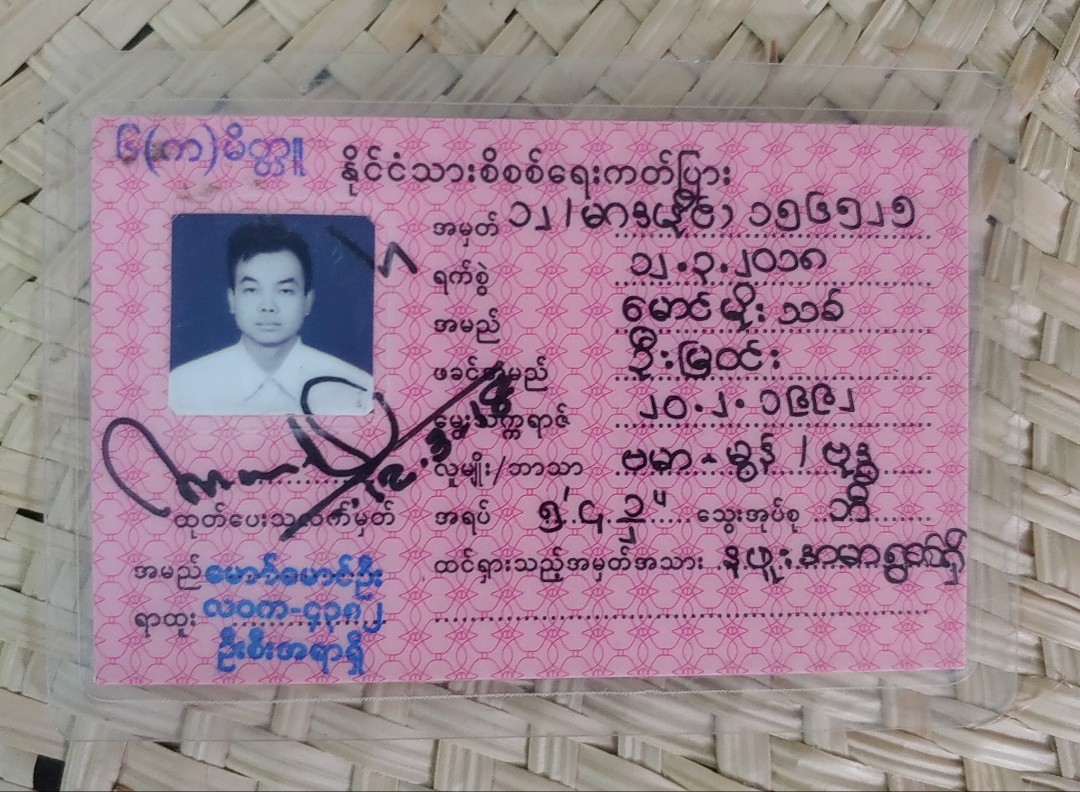 ၆(က)မိတ္တူ
နိုင်ငံသားစိစစ်ရေးကတ်ပြား
အမှတ် ၁၂/မဂဒ(နိုင်) ၁၅၆၅၂၅
ရက်စွဲ ၁၂.၃.၂၀၁၈
အမည် မောင်မိုးသစ်
ဖခင်အမည် ဦးမြဝင်း
မွေးသက္ကရာဇ် ၂၀.၂.၁၉၉၂
လူမျိုး/ဘာသာ ဗမာ-မွန်/ဗုဒ္ဓ
အရပ် ၅' သွေးအုပ်စု ဘီ
ထင်ရှားသည့်အမှတ်အသား
ထုတ်ပေးသူလက်မှတ်
အမည် မောင်မောင်ဦး
ရာထူး လဝက-၄၃၈၂
ဦးစီးအရာရှိ